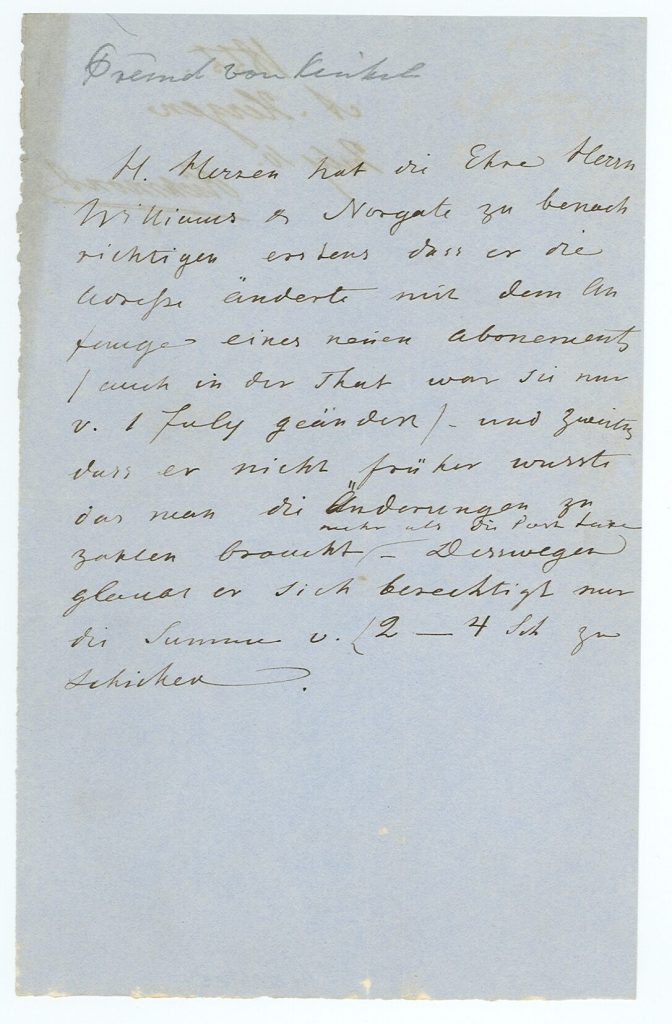 Freund von Kinkel
H. Herzen hat die Ehre Herrn
Williams & Norgate zu benach
richtigen erstens dass er die
Adresse änderte mit dem An
fange eines neuen abonements
/ auch in der That war sie nur
v. 1 July geändert / – und zweitens
dass er nicht früher wusste
das man die Änderungen zu
mehr als die Post taxe
zahlen braucht – Desswegen
glaubt er sich berechtigt nur
die Summe v. £2 – 4 Sch zu
schicken.